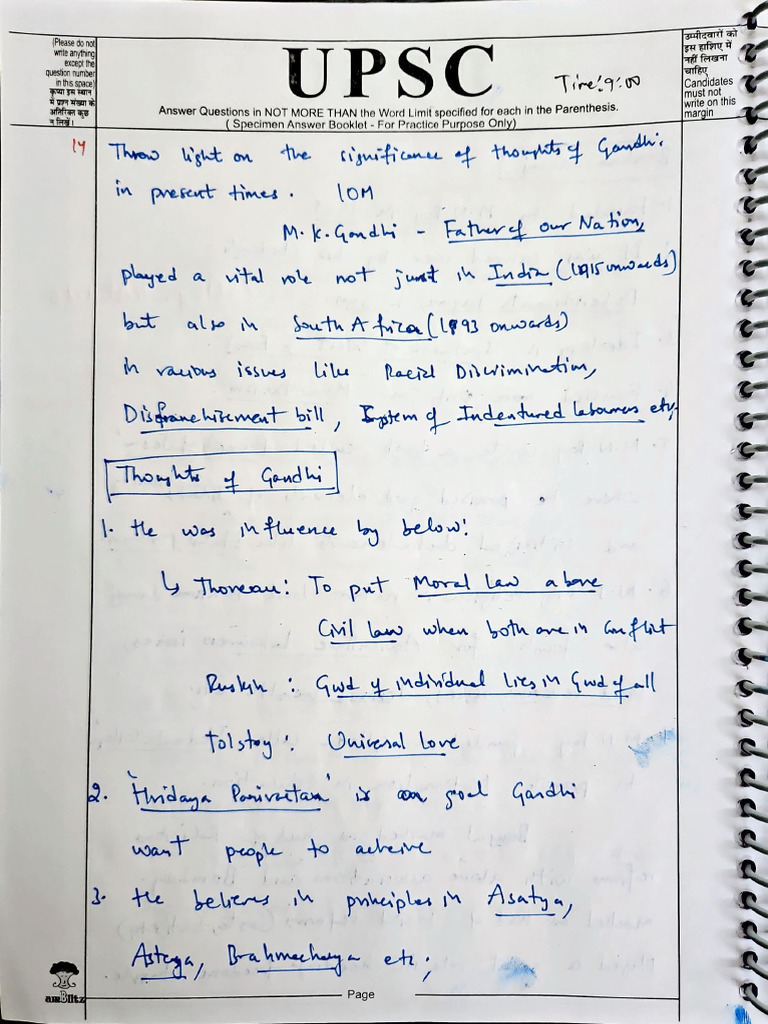 (Please do not
write anything
except the
question number
in this space)
कृपया इस स्थान
में प्रश्न संख्या के
अतिरिक्त कुछ
न लिखें।
UPSC
Time: 9:00
Answer Questions in NOT MORE THAN the Word Limit specified for each in the Parenthesis.
( Specimen Answer Booklet - For Practice Purpose Only)
उम्मीदवारों को
इस हाशिए में
नहीं लिखना
चाहिए
Candidates
must not
write on this
margin
14
Throw light on the significance of thoughts of Gandhi.
in present times. 10M
M.K.Gandhi - Father of our Nation,
played a vital role not just in India (1915 onwards)
but also in South Africa (1893 onwards)
in various issues like Racial Discrimination,
Disfranchisement bill, System of Indentured labourers etc.
Thoughts of Gandhi
1. He was influence by below:
↳ Thoreau: To put Moral law above
Civil law when both are in Conflict
Ruskin : Good of individual lies in Good of all
Tolstoy : Universal Love
2. 'Hridaya Parivartan' is goal Gandhi
want people to acheive
3. He believes in principles in Asatya,
Asteya, Brahmacharya etc;
amBlitz
Page